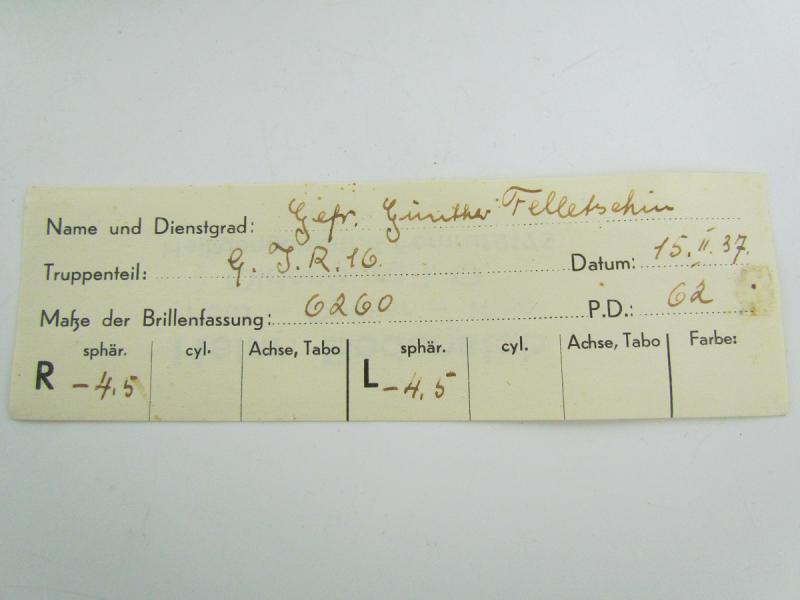 Name und Dienstgrad: Gefr. Günther Felletschin
Truppenteil: G. J. R. 16. Datum: 15. II. 37.
Maße der Brillenfassung: 6260 P.D.: 62
R sphär. cyl. Achse, Tabo L sphär. cyl. Achse, Tabo Farbe:
-4.5 -4.5